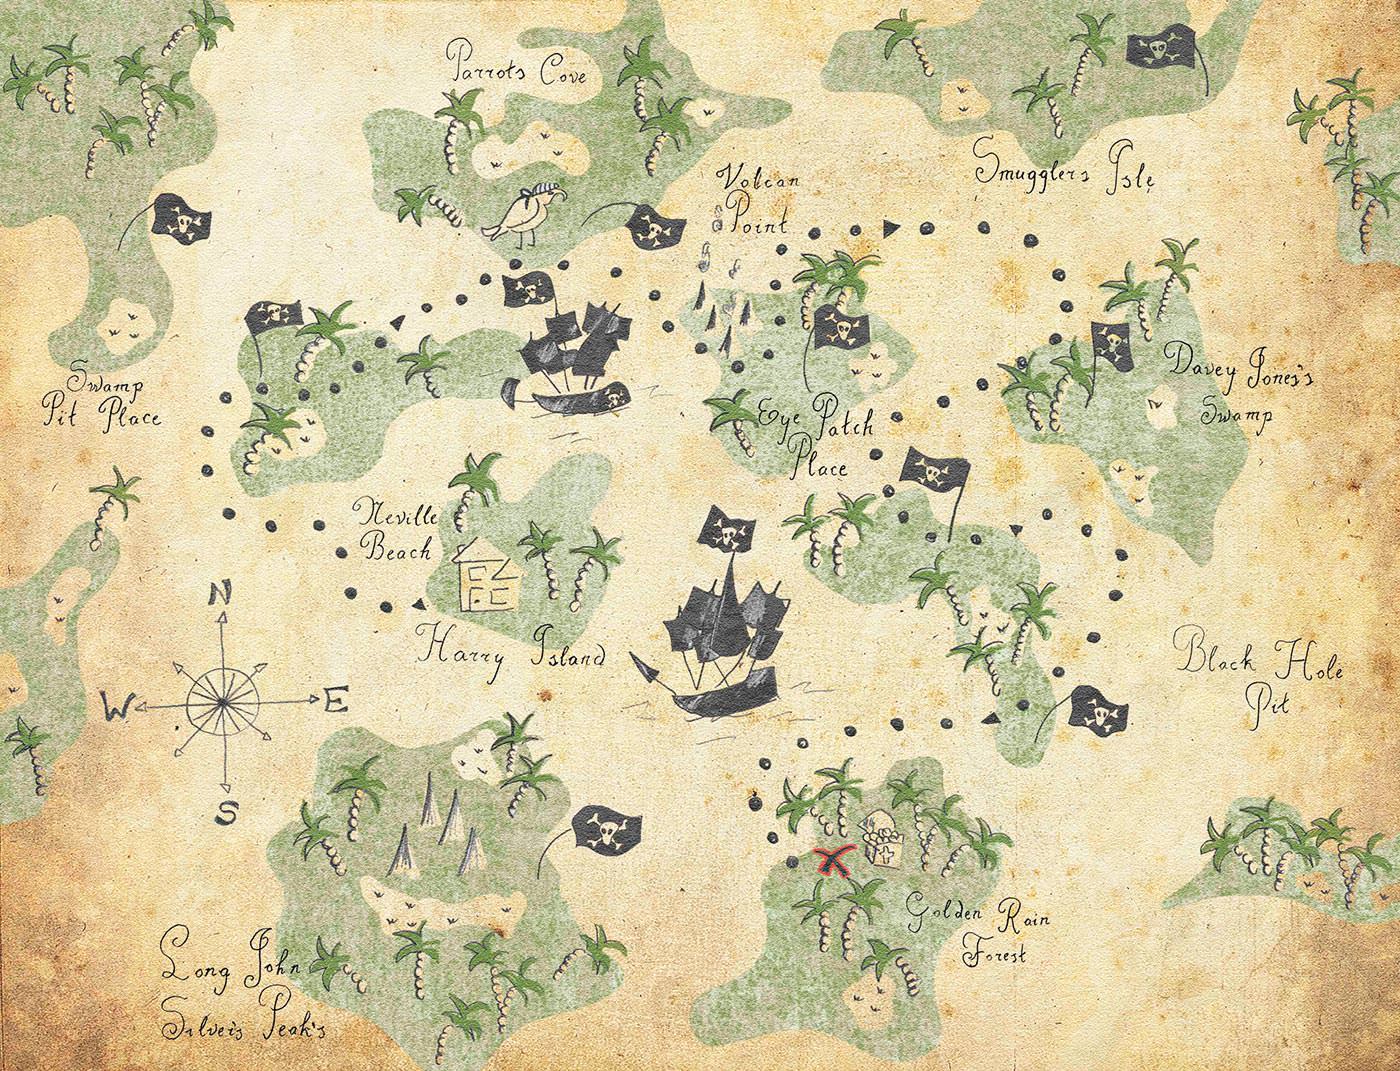 Parrots Cove
Smugglers Isle
Volcan
Point
Swamp
Pit Place
Davey Jones's
Swamp
Eye Patch
Place
Neville
Beach
Harry Island
N
W
E
S
Black Hole
Pit
Golden Rain
Forest
Long John
Silveis Peak's